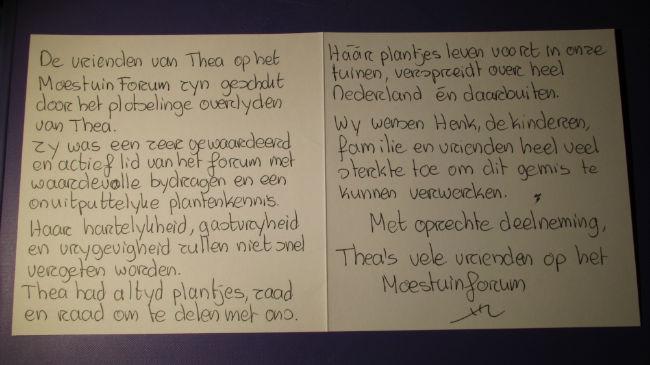 De vrienden van Thea op het
Moestuin Forum zyn geschokt
door het plotselinge overlyden
van Thea.
Zy was een zeer gewaardeerd
en actief lid van het forum met
waardevolle bydragen en een
onuitputtelyke plantenkennis.
Haar hartelykheid, gastvryheid
en vrygevigheid zullen niet snel
vergeten worden.
Thea had altyd plantjes, zaad
en raad om te delen met ons.
Háár plantjes leven voort in onze
tuinen, verspreidt over heel
Nederland én daarbuiten.
Wy wensen Henk, de kinderen,
familie en vrienden heel veel
sterkte toe om dit gemis te
kunnen verwerken.
Met oprechte deelneming,
Thea's vele vrienden op het
Moestuinforum